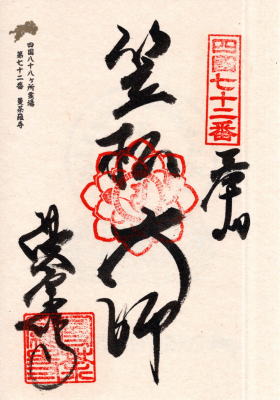 四国七十二番
奉
笠松大師
曼荼羅寺
四国八十八ヶ所霊場
第七十二番 曼荼羅寺